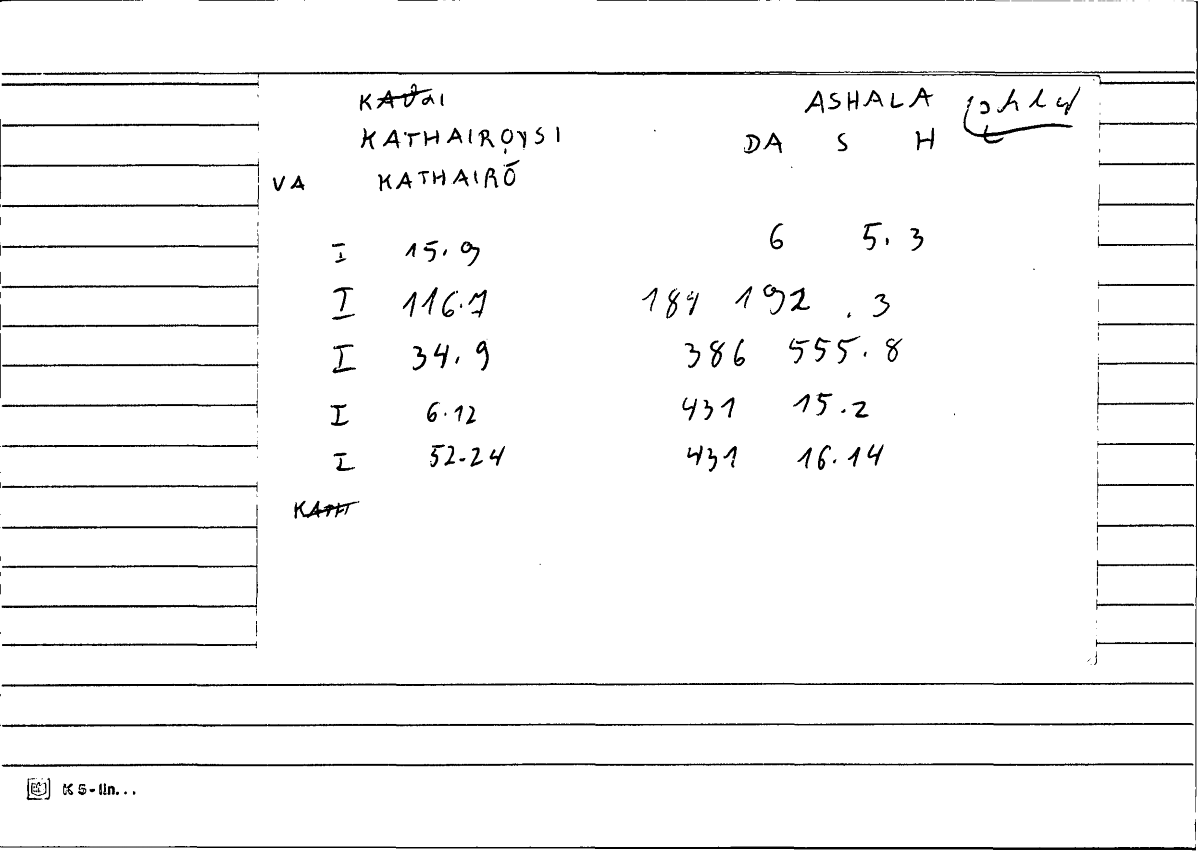 KAθAI ASHALA
KATHAIROYSI DA S H
VA KATHAIRŌ
I 15.9 6 5.3
I 116.7 184 192.3
I 34.9 386 555.8
I 6.12 431 15.2
I 52-24 431 16.14
KATH
K 5-lin...